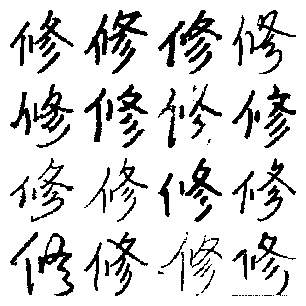 修修修修
修修修修
修修修修
修修修修